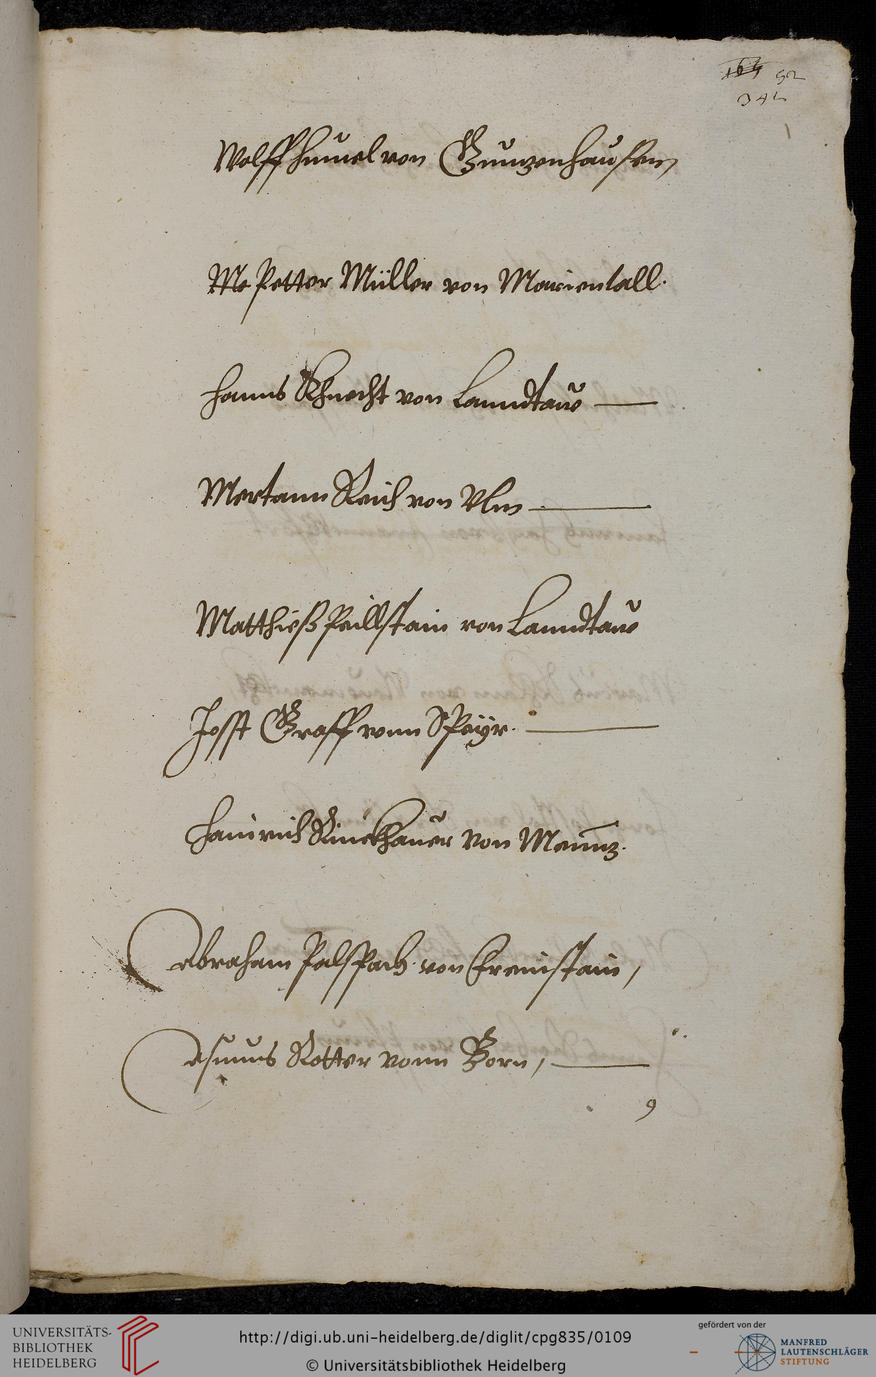 164 92
342
Wolff Hummel von Gunzenhausen,
Me Petter Müller von Marientall.
Hanns Khnecht von Lanndtaw
Mertann Reich von Vlm
Matthieß Peillstain von Lanndtaw
Josst Graff vonn Speyr.
Hainrich Rinckhauer von Meinntz.
Abraham Palspach von Creinstain,
Asmus Rotter vonn Born,
9
UNIVERSITÄTS-
BIBLIOTHEK
HEIDELBERG
http://digi.ub.uni-heidelberg.de/diglit/cpg835/0109
© Universitätsbibliothek Heidelberg
gefördert von der
MANFRED
LAUTENSCHLÄGER
STIFTUNG